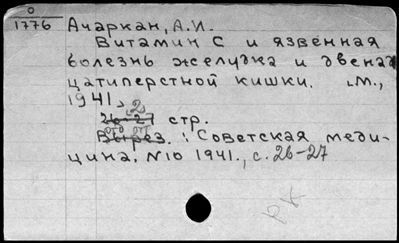 0
1776 Ачаркан, А.И.
Витамин С и язвенная
болезнь желудка и двенад
цатиперстной кишки. М.,
1941,
2
26-27 стр.
отд отт
Вырез. : Советская меди-
цина, N10 1941., с. 26-27
РК